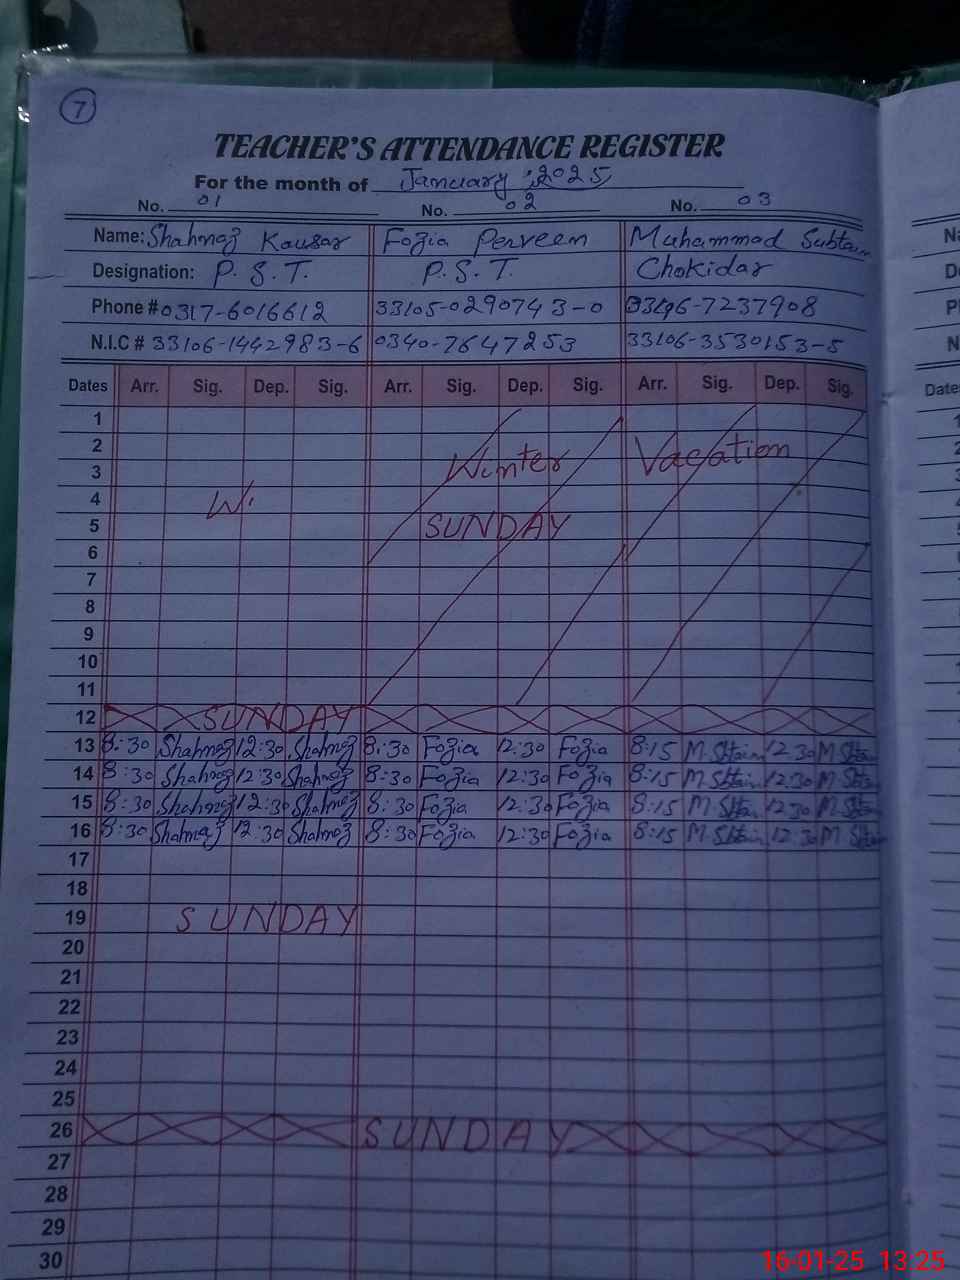 7
TEACHER'S ATTENDANCE REGISTER
For the month of January, 2025
No. 01 No. 02 No. 03
Name: Shahnaz Kausar Fozia Perveen Muhammad Subtain
Designation: P.S.T. P.S.T. Chokidar
Phone # 0317-6016612 33105-0290743-0 7237908
N.I.C # 33106-1442983-6 0340-7647253 33106-3530153-5
Dates Arr. Sig. Dep. Sig. Arr. Sig. Dep. Sig. Arr. Sig. Dep. Sig.
1
2 Winter Vacation
3
4 Wi
5 SUNDAY
6
7
8
9
10
11
12 SUNDAY
13 8:30 Shahnaz 12:30 Shahnaz 8:30 Fozia 12:30 Fozia 8:15 M.Sbtain 12:30 M.Sbtain
14 8:30 Shahnaz 12:30 Shahnaz 8:30 Fozia 12:30 Fozia 8:15 M.Sbtain 12:30 M.Sbtain
15 8:30 Shahnaz 12:30 Shahnaz 8:30 Fozia 12:30 Fozia 8:15 M.Sbtain 12:30 M.Sbtain
16 8:30 Shahnaz 12:30 Shahnaz 8:30 Fozia 12:30 Fozia 8:15 M.Sbtain 12:30 M.Sbtain
17
18
19 SUNDAY
20
21
22
23
24
25
26 SUNDAY
27
28
29
30
Na
De
N
Dates
16-01-25 13:25